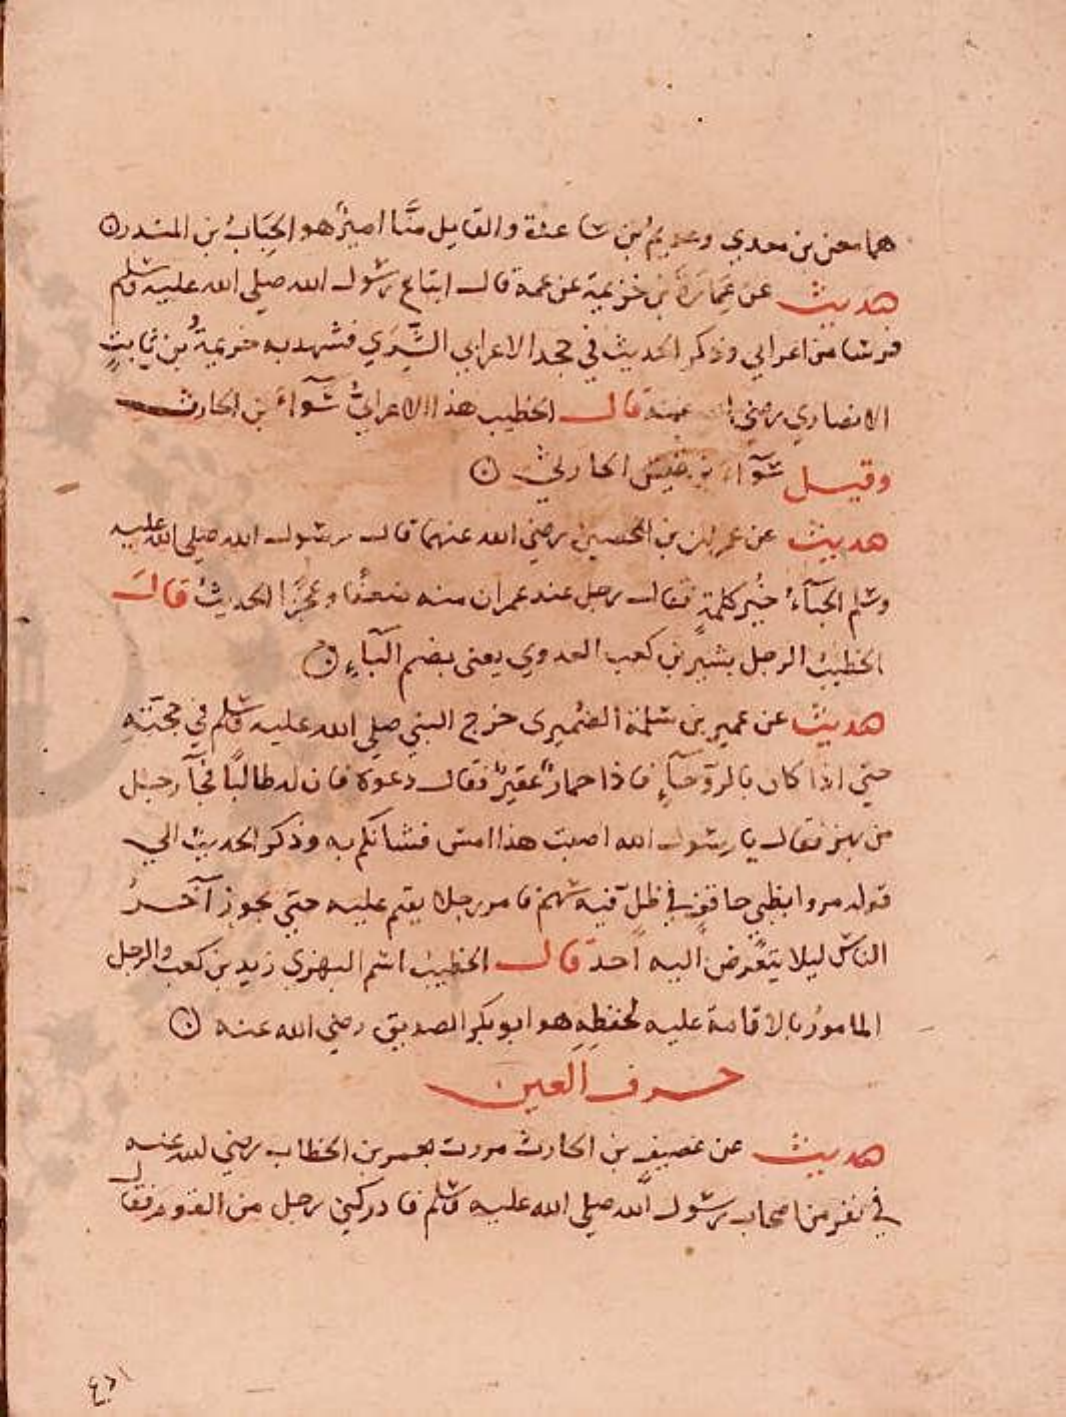 هما معن بن معدي وعويم بن ساعدة والقايل منَّا اميرٌ هو الحُبَابُ بن المنذر ه
حديث عن عمارةَ بن خزيمة عن عمه قال ابتاع رسول الله صلي الله عليه وسلم
فرسا من اعرابي وذكر الحديث في جحد الاعرابي الشِّرَي فشهد به خزيمةُ بن ثابتٍ
الانصاري رضي الله عنه قال الخطيب هذا الاعرابيُّ سَوَآءُ بن الحارث
وقيل سَوَآء بن قيس الحارثي ه
حديث عن عمران بن الحصين رضي الله عنهما قال رسول الله صلي الله عليه
وسلم الحيَآءُ خيرٌ كلمةٍ فقال رجل عند عمران منه ضعفًا وعجزًا الحديثُ قالَ
الخطيبُ الرجل بشير بن كعب العدوي يعنى بضم البَآءِ ه
حديث عن عمير بن سَلَمة الضميرى خرج النبي صلي الله عليه وسلم في حجتهِ
حتي اذا كان بالروحَآءِ فاذا حمارٌ عقيرٌ فقال دعوه فان له طالبًا فجآ رجل
من بهز فقال يا رسول الله اصبت هذا امس فشانكم به وذكر الحديث الي
قوله مروا بظبي حاقفٍ في ظلٍ فيه سهم فامر رجلا يقيم عليه حتي يجوز آخرُ
الناس ليلا يتعَّرض اليه احد قال الخطيبُ اسم البهزي زيد بن كعب والرجل
المامورُ بالاقامة عليه لحفظِهِ هو ابو بكر الصديق رضي الله عنه ه
حرف الغين
حديث عن غضيف بن الحارث مررت بعمر بن الخطاب رضي الله عنه
في نفر من اصحاب رسول الله صلي الله عليه وسلم فادركني رجل من القوم فقال